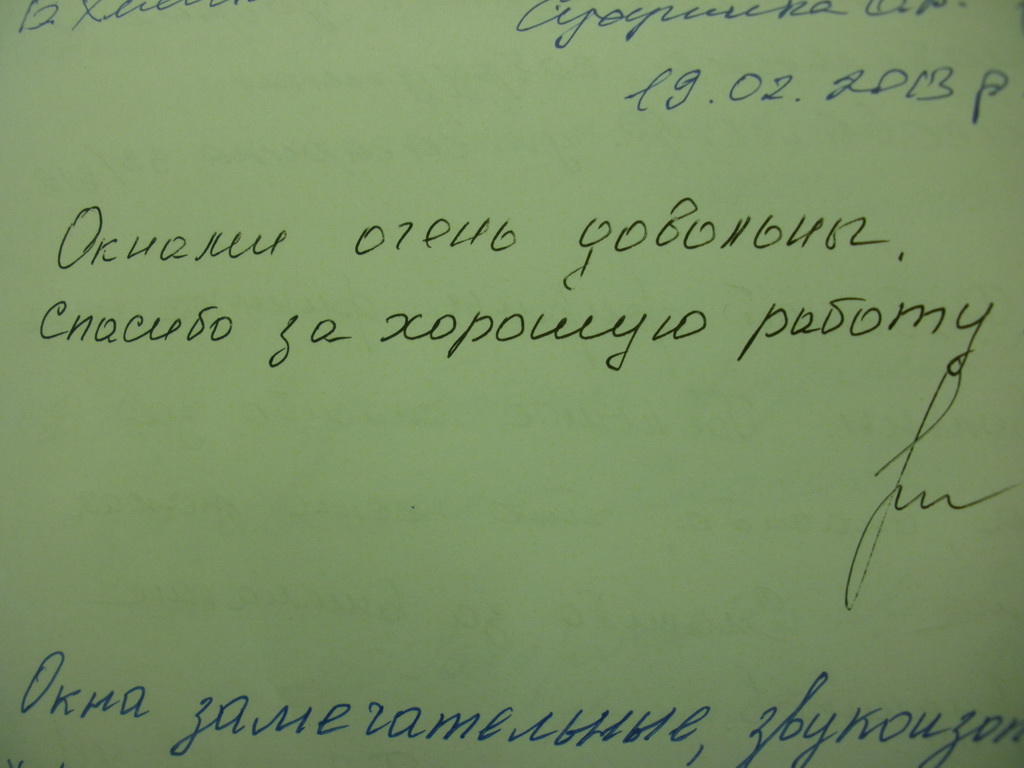 19.02.2013 р
Окнами очень довольны.
Спасибо за хорошую работу
Окна замечательные, звукоизол